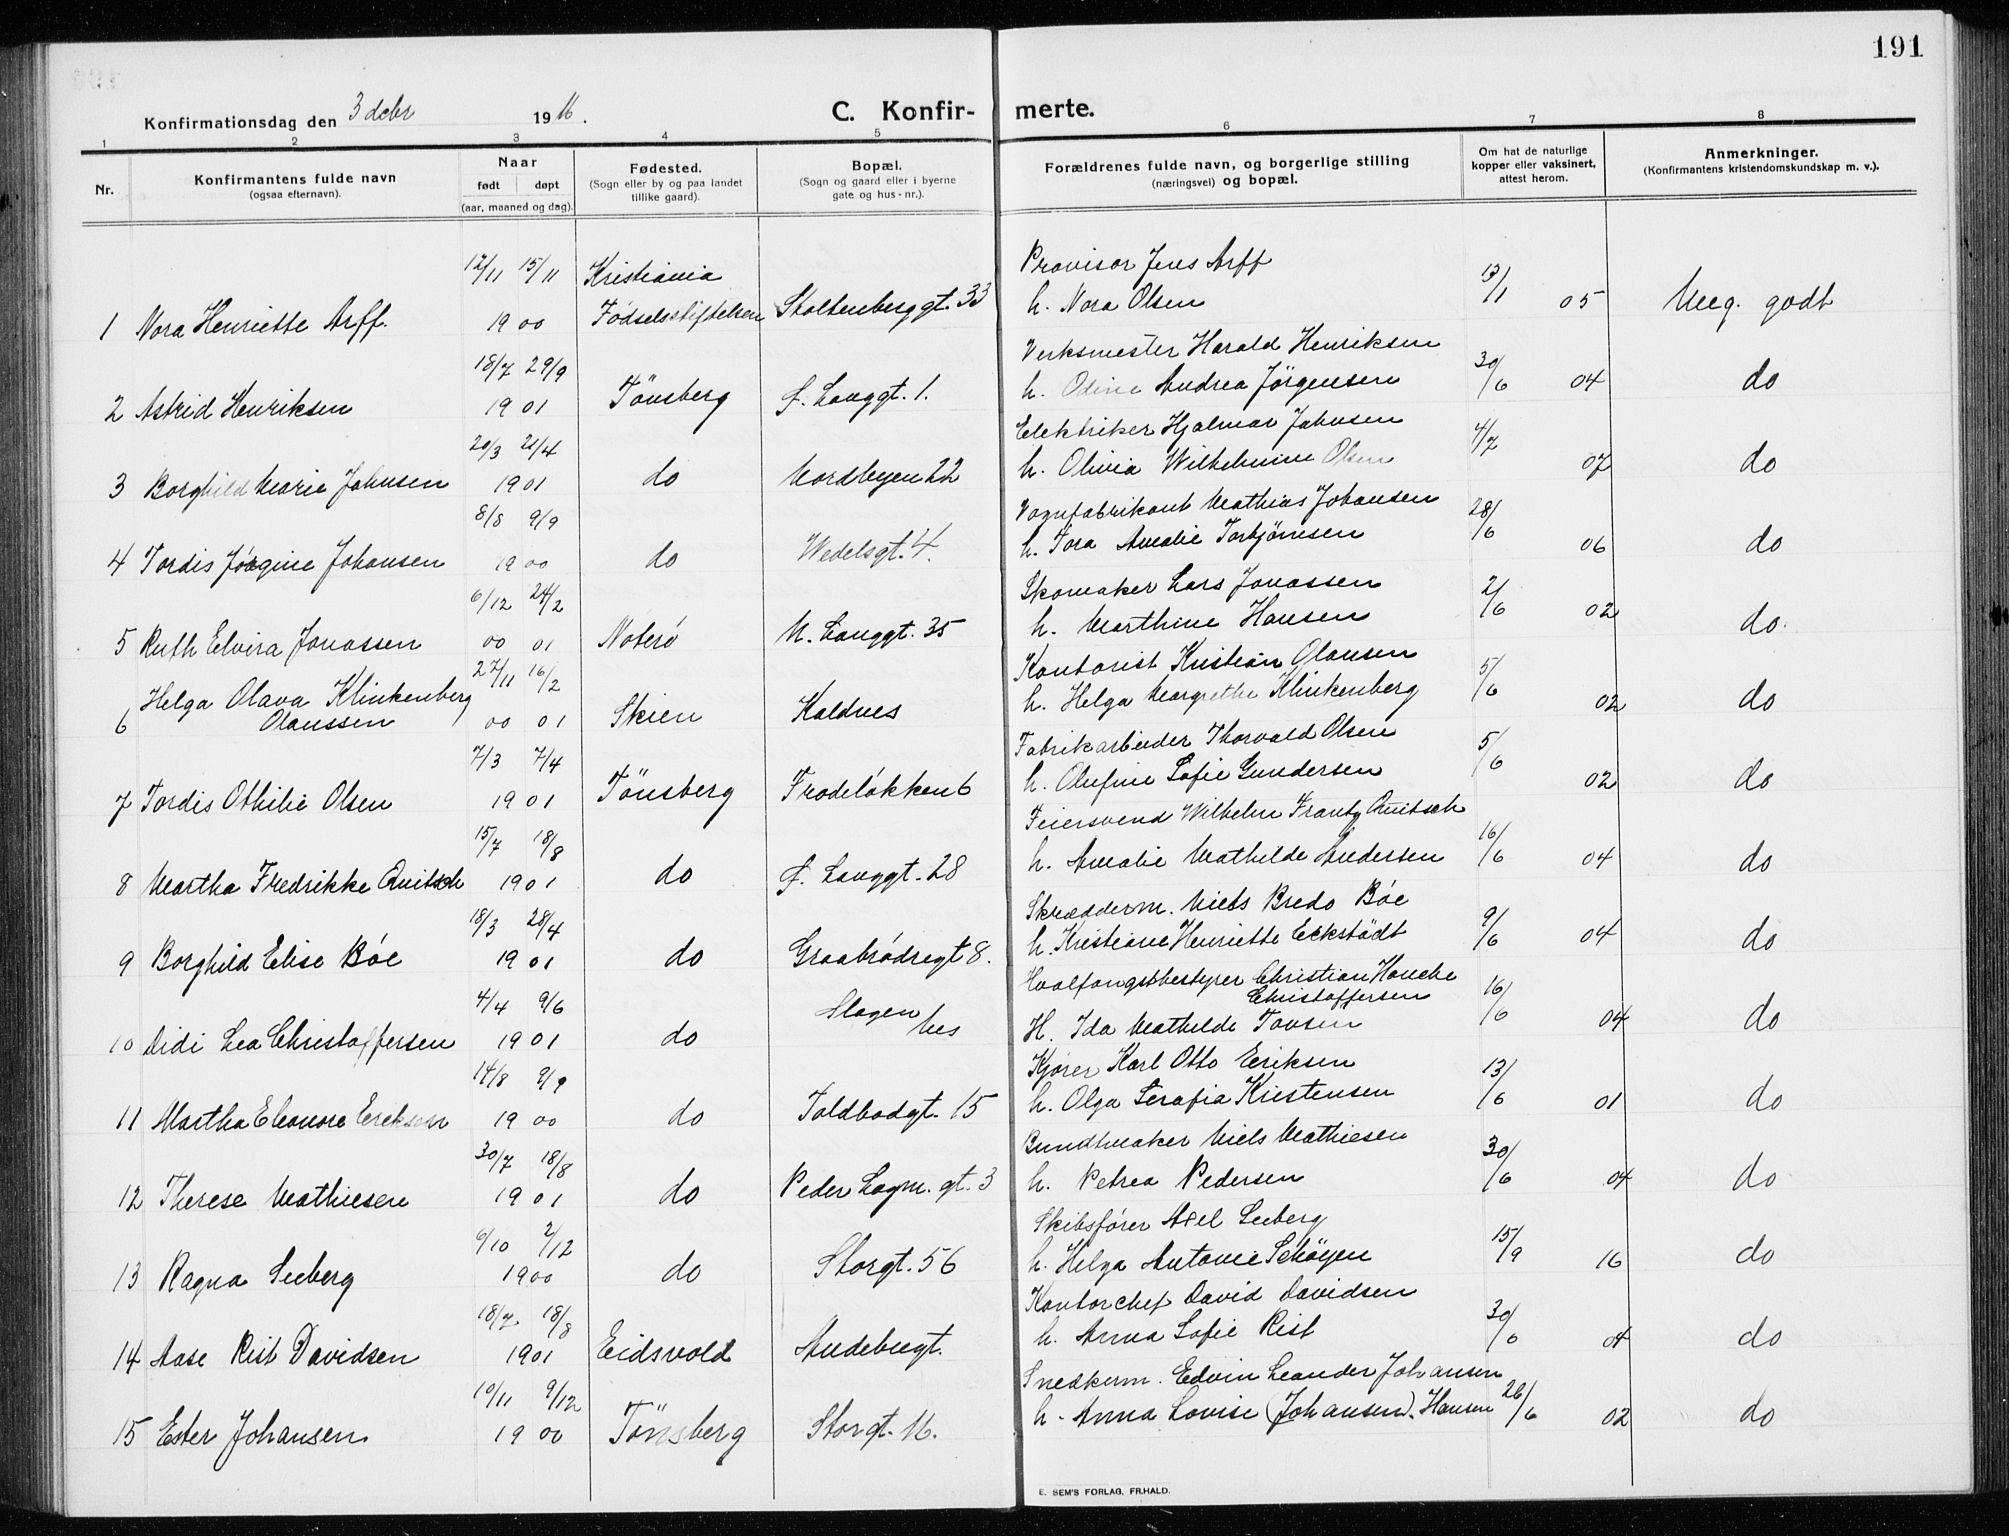 191
Konfirmationsdag den 3 dcbr 1916.
C. Konfirmerte.
1 2 3 4 5 6 7 8
Nr.
Konfirmantens fulde navn
(ogsaa efternavn).
Naar
født døpt
(aar, maaned og dag).
Fødested.
(Sogn eller by og paa landet
tillike gaard).
Bopæl.
(Sogn og gaard eller i byerne
gate og hus-nr.).
Forældrenes fulde navn, og borgerlige stilling
(næringsvei) og bopæl.
Om hat de naturlige
kopper eller vaksinert,
attest herom.
Anmerkninger.
(Konfirmantens kristendomskundskap m. v.).
12/11 15/11 Kristiania Provisor Jens Arff 13/1
1 Nora Henriette Arff. 1900 Fødselsstiftelsen Stoltenberggt. 33 h. Nora Olsen 05 Meg. godt
18/7 29/9 Verksmester Harald Henriksen 30/6
2 Astrid Henriksen 1901 Tönsberg f. Langgt. 1. h. Odine Andrea Jörgensen 04 do
20/3 21/4 Elektriker Hjalmar Johnsen 4/7
3 Borghild Marie Johnsen 1901 do Nordbyen 22 h. Olivia Wilhelmine Olsen 07 do
8/8 9/9 Vognfabrikant Mathias Johansen 28/6
4 Tordis Jørgine Johansen 1900 do Wedelsgt. 4. h. Tora Amalie Torbjörnsen 06 do
6/12 24/2 Skomaker Lars Jonassen 2/6
5 Ruth Elvira Jonassen 00 01 Noterö N. Langgt. 35 h. Marthine Hansen 02 do.
Helga Olava Klinkenberg 27/11 16/2 Kontorist Kristian Olausen 5/6
6 Olaussen 00 01 Skien Kaldnes h. Helga Margrethe Klinkenberg 02 do
7/3 7/4 Fabrikarbeider Thorvald Olsen 5/6
7 Tordis Othilie Olsen 1901 Tönsberg Frodeløkken 6 h. Olufine Sofie Gundersen 02 do
15/7 18/8 Feiersvend Wilhelm Frantz Quitsch 16/6
8 Martha Fredrikke Quitsch 1901 do f. Langgt. 28 h. Amalie Mathilde Andersen 04 do
18/3 28/4 Skrædderm. Niels Bredo Bøe 9/6
9 Borghild Elise Bøe 1901 do Graabrødregt 8. h. Kristiane Henriette Eckstödt 04 do
4/4 9/6 Slagen Hvalfangstbestyrer Christian Hauche Christoffersen 16/6
10 Didi Lea Christoffersen 1901 do hes H. Ida Mathilde Tovsen 04 do
14/8 9/9 Kjører Karl Otto Eriksen 13/6
11 Martha Eleonore Eriksen 1900 do Toldbodgt. 15 h. Olga Serafia Kristensen 01 do
30/7 18/8 Bundtmaker Niels Mathiesen 30/6
12 Therese Mathiesen 1901 do Peder Lagm. gt. 3 h. Petrea Pedersen 04 do
6/10 2/12 Skibsfører Axel Seeberg 15/9
13 Ragna Seeberg 1900 do Storgt. 56 h. Helga Antonie Schöyen 16 do
18/7 18/8 Kontorchef David Davidsen 30/6
14 Aase Rist Davidsen 1901 Eidsvold Andebugt. h. Anna Sofie Rist 04 do
10/11 9/12 Snedkerm. Edvin Leander Johansen 26/6
15 Ester Johansen 1900 Tönsberg Storgt. 16. h. Anna Lovise (Johansen). Hansen 02 do
E. SEM'S FORLAG, FR.HALD.